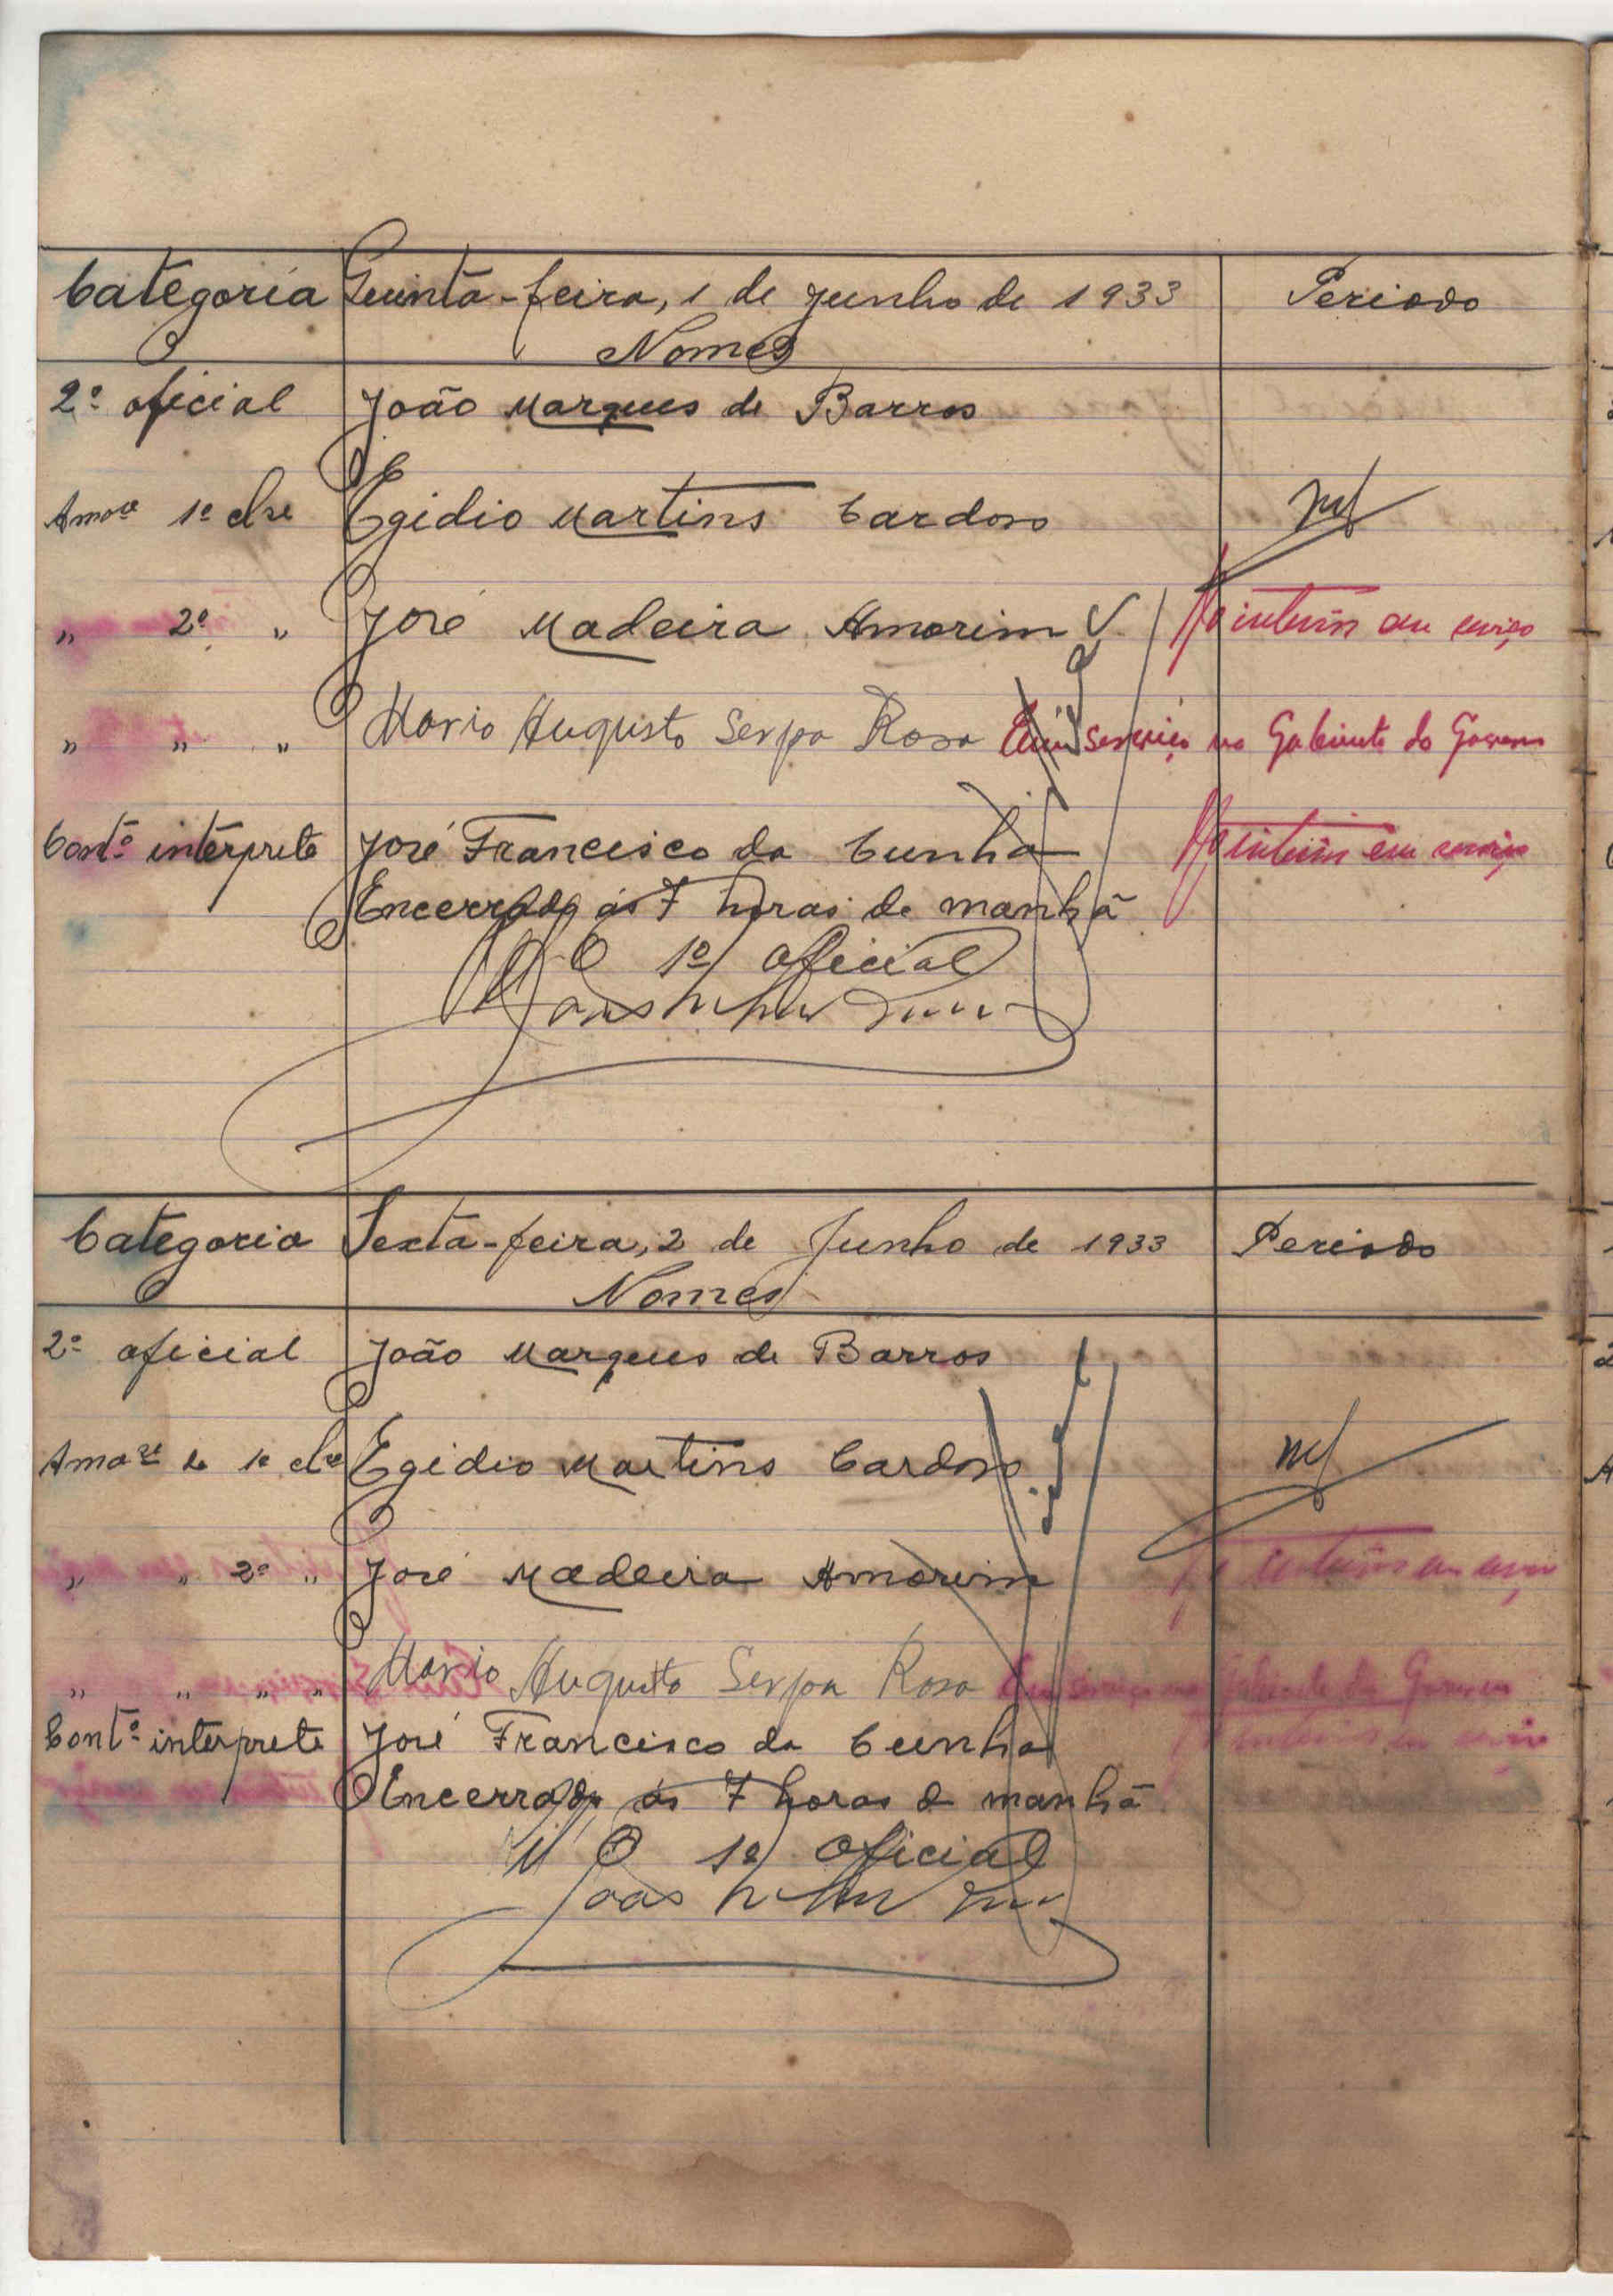 Categoria Quinta-feira, 1 de Junho de 1933 Periodo
Nomes
2º oficial João Marques de Barros
Amoze 1ª clse Egidio Martins Cardoso
" 2ª " José Madeira Amorim em serviço
" " " Mario Augusto Serpa Rosa Em serviço no Gabinete do Governo
Contº interprete José Francisco da Cunha em serviço
Encerrado ás 7 horas da manhã
O 1º oficial
Categoria Sexta-feira, 2 de Junho de 1933 Periodo
Nomes
2º oficial João Marques de Barros
Amoze de 1ª clse Egidio Martins Cardoso
" " 2ª " José Madeira Amorim
" " " " Mario Augusto Serpa Rosa Em serviço no Gabinete do Governo
Contº interprete José Francisco da Cunha
Encerrado ás 7 horas da manhã
O 1º oficial